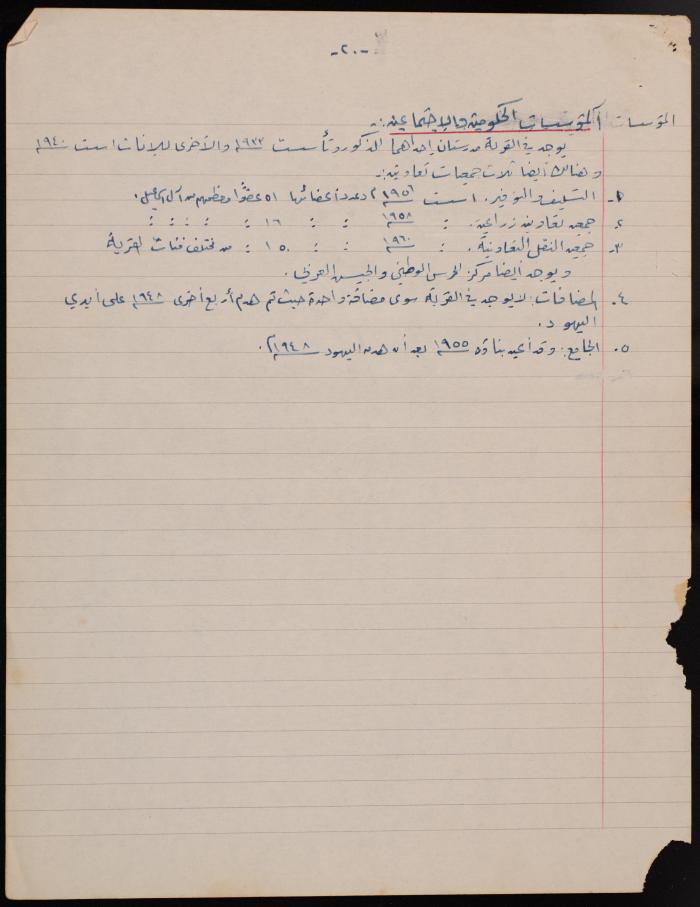 -٢٠-
المؤسسات المؤسسات الحكومية والاجتماعية :-
يوجد في القرية مدرستان احداهما للذكور وتأسست ١٩٢٢م والأخرى للاناث اسست ١٩٤٠م
وهنالك أيضا ثلاث جمعيات تعاونية :-
١- التسليف والتوفير. اسست ١٩٥٦م وعدد أعضائها ٥١ عضوًا معظمهم من آل
٢. جمعية تعاونية زراعية. : ١٩٥٨م : : ١٦ : : : : :
٣. جمعية النقل التعاونية. : ١٩٦٠م : : ١٥٠ : من مختلف فئات القرية
ويوجد أيضا مركز الحرس الوطني والجيش العربي.
٤. المضافات: لا يوجد في القرية سوى مضافة واحدة حيث تم هدم أربع أخرى ١٩٤٨م على أيدي
اليهود.
٥. الجامع: وقد أعيد بناؤه ١٩٥٥م بعد أن هدمه اليهود ١٩٤٨م.